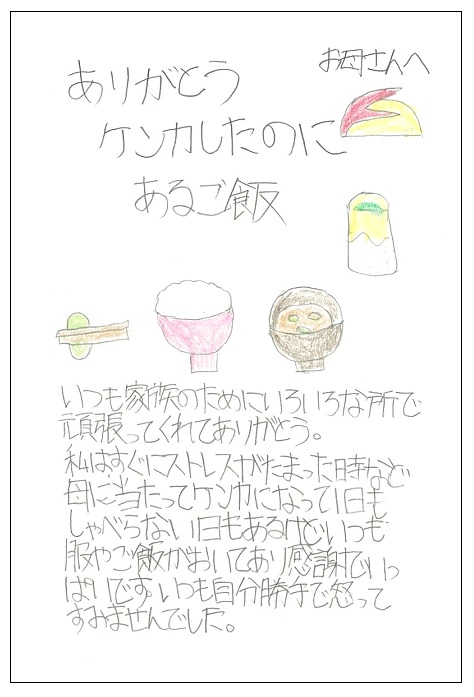 お母さんへ
ありがとう
ケンカしたのに
あるご飯
いつも家族のためにいろいろな所で
頑張ってくれてありがとう。
私はすぐにストレスがたまった時など
母に当たってケンカになって1日も
しゃべらない日もあるけどいつも
服やご飯がおいてあり感謝でいっ
ぱいです。いつも自分勝手で怒って
すみませんでした。